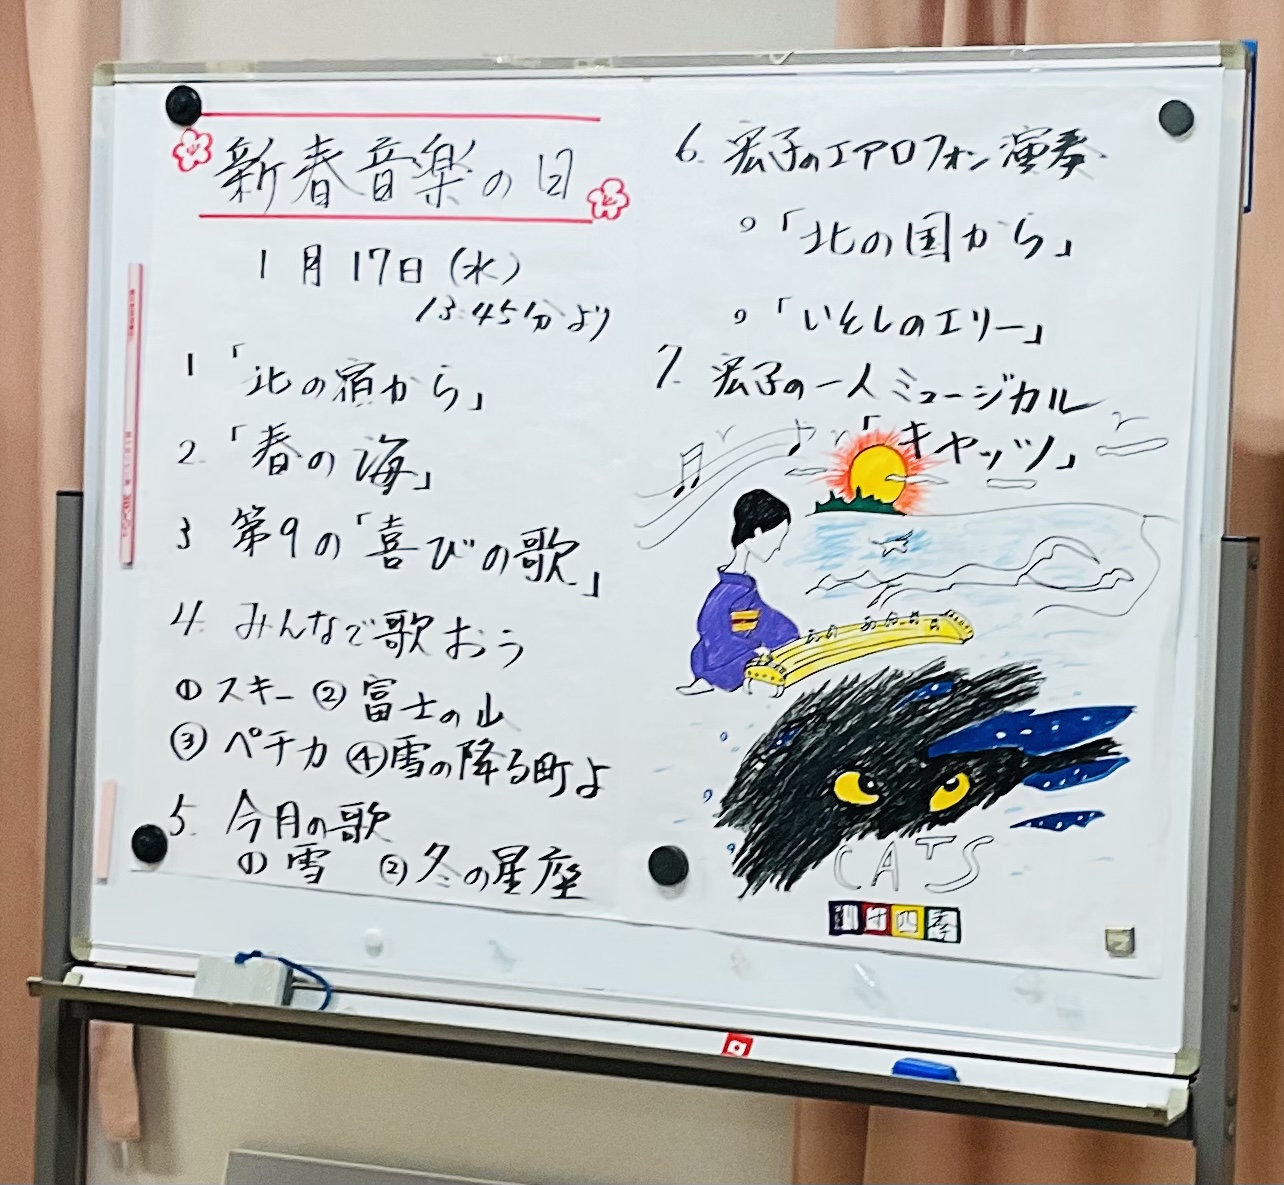 新春音楽の日
1月17日(水)
13:45分より
1 「北の宿から」
2. 「春の海」
3 第9の「喜びの歌」
4. みんなで歌おう
① スキー ② 富士の山
③ ペチカ ④ 雪の降る町よ
5. 今月の歌
の 雪 ② 冬の星座
6. 宏子のエアロフォン演奏
○「北の国から」
○「いとしのエリー」
7. 宏子の一人ミュージカル
「キャッツ」
CATS
劇団四季